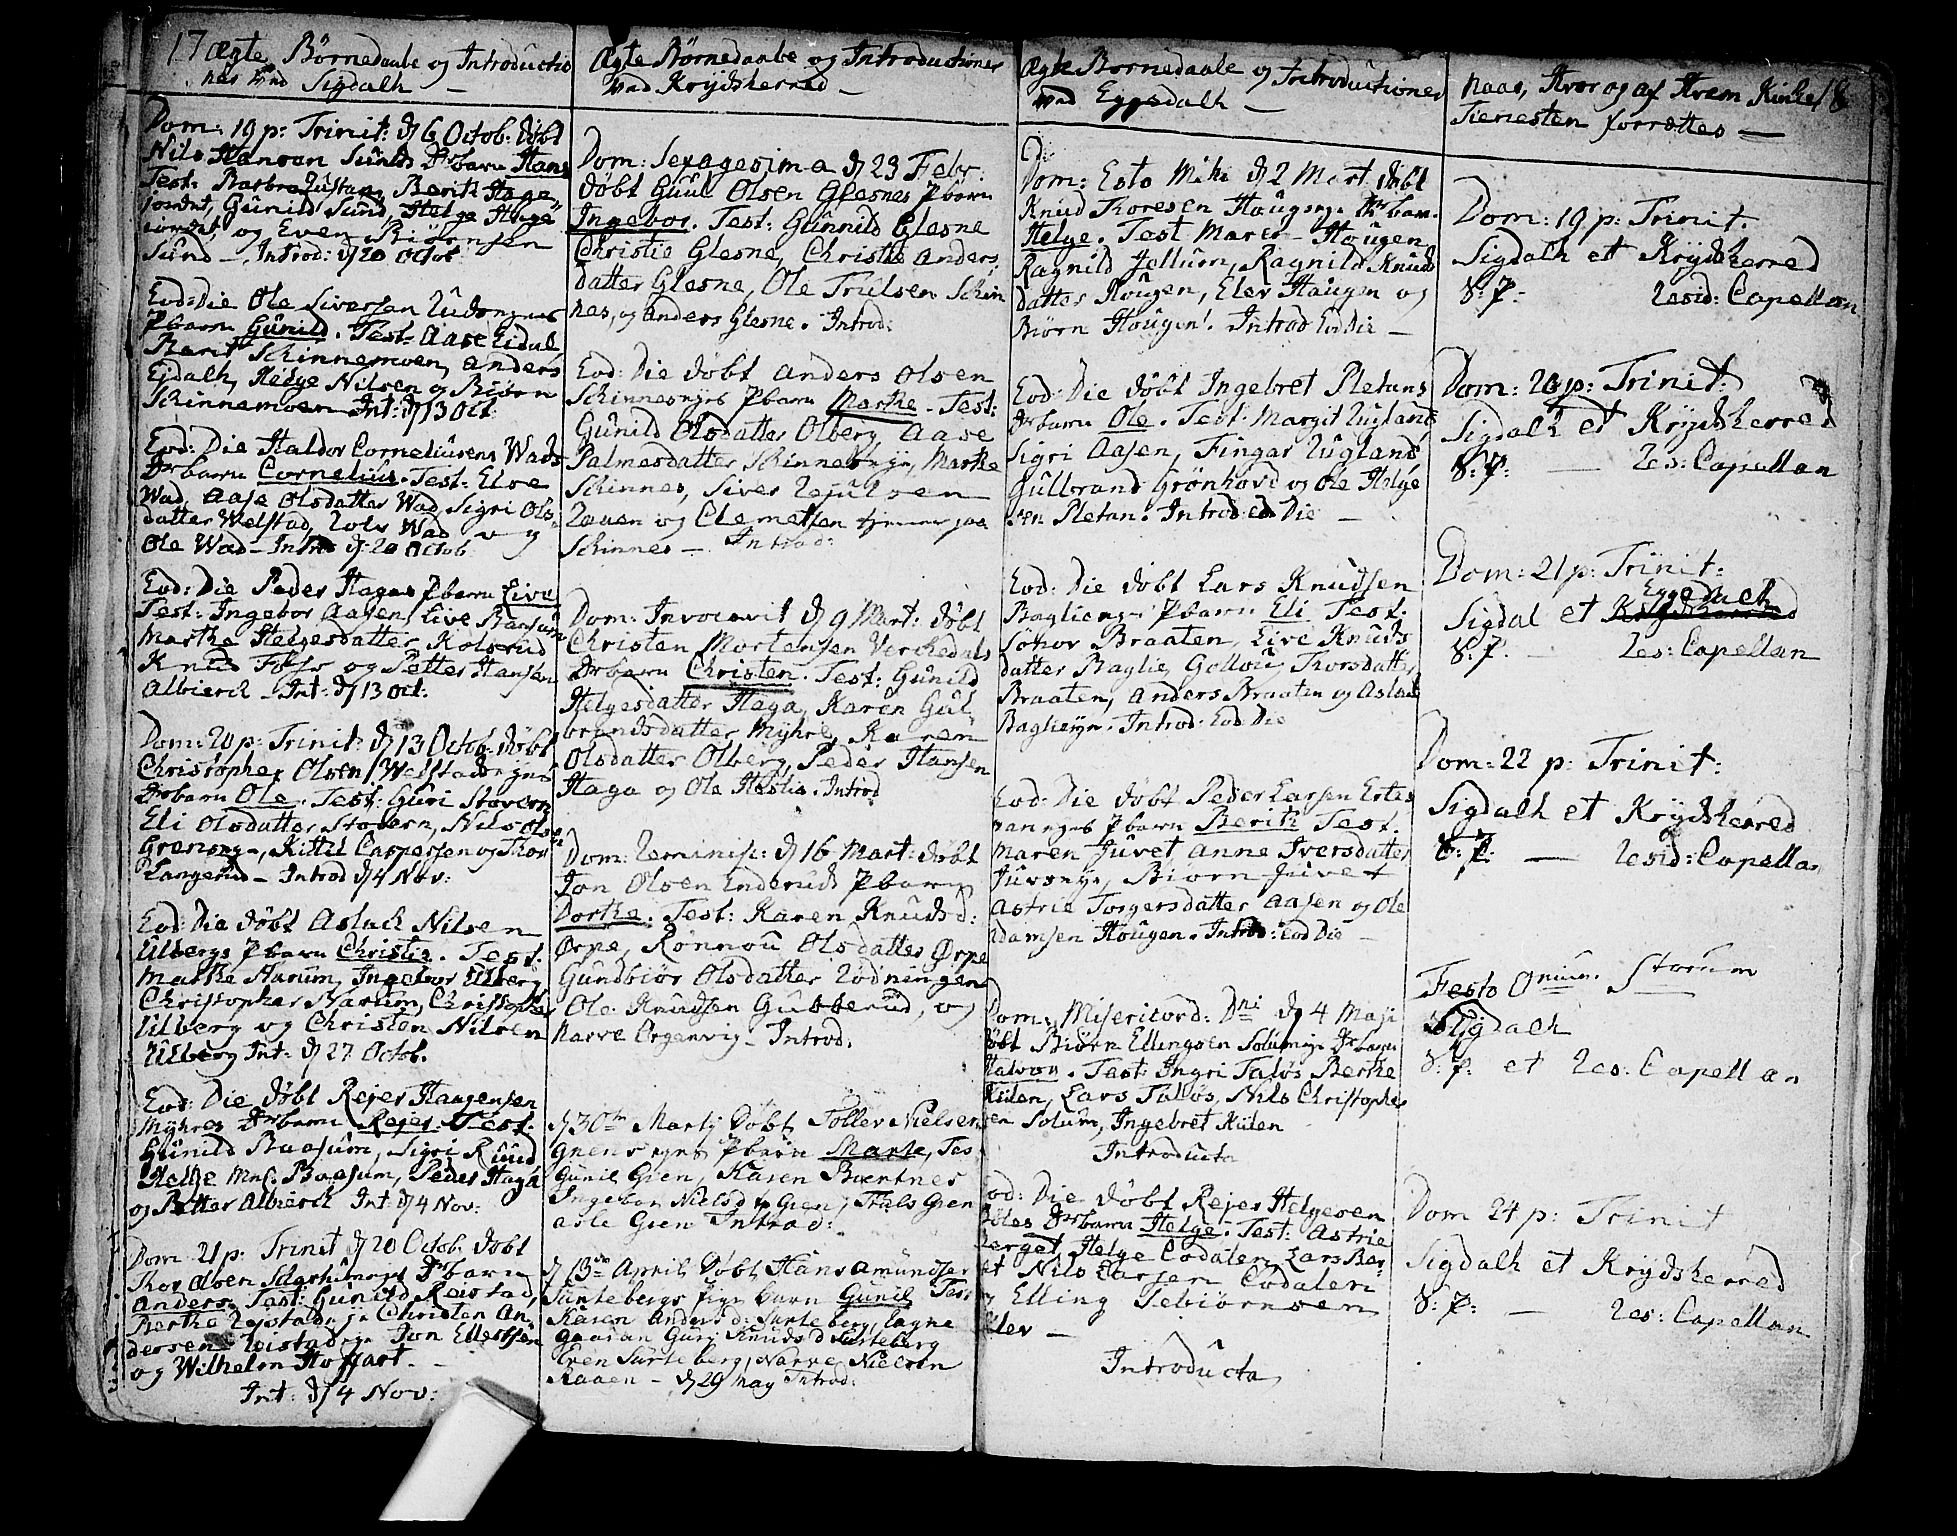 17 Ægte Børnedaabe og Introductio
nes ved Sigdalh —
Dom: 19 p: Trinit: d 6 Octob: döbt
Nils Hansen Sunds Drbarn Hans
Test: Barbra Berit Hage
iordet, Gunild Sund, Helge Hage
iordet, og Even Biörnsen
Sund — Introd: d 20 Octob:
Eod: Die Ole Siversen
Pbarn Gunild. Test: Aase Eidal
Berit Skinnemoen, Anders
Ejdalh, Helge Nilsen og Biörn
Skinnemoen Int: d 13 Oct:
Eod: Die Haldor Corneliusens Wads
Drbarn Cornelius. Test: Else
Wad, Aase Olsdatter Wad, Sigri Ols
datter Welstad, Rolv Wad og
Ole Wad — Introd d. 20 Octob
Eod: Die Peder Hagas Pbarn Live
Test: Ingebor Aasen, Live Baasum
Marthe Helgesdatter Kolsrud
Knud Foss og Petter Hansen
Albierch — Int: d 13 Oct:
Dom: 20 p: Trinit: d 13 Octob: döbt
Christopher Olsen Welstadeyes
Drbarn Ole. Test: Guri Stovern
Eli Olsdatter Stovern, Nils Olsen
Grenseye, Kittil Caspersen og Thor
Langerud — Introd d 4 Nov:
Eod: Die döbt Aslach Nilsen
Ulbergs Pbarn Christie. Test:
Marthe Narum, Ingebor Ulberg
Christopher Narum, Christopher
Ulberg og Christen Nilsen
Ulberg Int: d 27 Octob.
Eod: Die döbt Rejer Haagensen
Myhres Drbarn Rejer. Test:
Gunild Baasum, Sigri Ruud
Helhe Baasum, Peder Haga
og Petter Albierch Int: d 4 Nov:
Dom 21 p: Trinit d 20 Octob. döbt
Thor Olsen Drbarn
Anders. Test: Gunild Reistad,
Berthe Rejstadeje Christen An
dersen Reistadeje Jon Ellefsen
og Wilhelm Hoffart. —
Int: d 4 Nov:
Ægte Børnedaabe og Introductioner
ved Krydsherred —
Dom: Sexagesima d 23 Febr:
döbt Guul Olsen Glesnes Pbarn
Ingebor. Test: Gunnild Glesne
Christie Glesne, Christie Anders
datter Glesne, Ole Truelsen Skin
nes, og Anders Glesne. Introd:
Eod: Die döbt Anders Olsen
Skinneseyes Pbarn Marthe. Test:
Gunild Olsdatter Olberg, Aase
Palmesdatter Skinneseye, Marthe
Skinnes, Siver
Raaen og Clemetsen tjener paa
Skinnes — Introd:
Dom: Invocavit d 9 Mart: döbt
Christen Mortensen Verkedals
Drbarn Christen. Test: Gunild
Helgesdatter Haga, Karen Gul
brandsdatter Myhre, Karen
Olsdatter Olberg, Peder Hansen
Haga og Ole Hestie. Introd
Dom: Reminisc: d 16 Mart: döbt
Jon Olsen Enderuds Pbarn
Dorthe. Test: Karen Knudsd:
Ørpe, Rönnou Olsdatter Ørpe
Gundbiör Olsdatter Rödningen
Ole Knudsen Gubberud, og
Narve Orgenvig — Introd:
d 30te Martij Döbt Toller Nielsen
Grens eyes Pbarn Marte, Tes
Gunil Gren, Karen Bvertnes
Ingebor Nielsd Gren, Thals Gren
Asle Gren Introd:
d 13de April Döbt Hans Amundsen
Surtebergs pige barn Gunil Test
Karen Anders d: Surteberg, Lagne
Gaasan Guri Knuds d Surteberg
Even Surteberg, Narve Nielsen
Raaen — d 29 May Introd:
Ægte Børnedaabe og Introductioner
ved Eggedalh —
Dom: Esto Mihi d 2 Mart döbt
Knud Thoresen Hougens Drbarn
Helge. Test Maren Hougen
Ragnild Jellum, Ragnild Knuds
datter Hougen, Elev Hougen og
Biörn Hougen. Introd Eod Die —
Eod: Die döbt Ingebret Pletans
Drbarn Ole. Test: Margit Rugland
Sigri Aasen, Fingar Rugland
Gullbrand Grönhovd og Ole Helge
sen Pletan. Introd: eod Die —
Eod: Die döbt Lars Knudsen
Baglieeye Pbarn Eli Test:
Söhov Braaten, Live Knuds
datter Baglie, Gollou Thorsdatter
Braaten, Anders Braaten og Aslach
Baglieeye. Introd: Eod Die
Eod: Die döbt Peder Larsen
Pbarn Berith Test.
Maren Juvet, Anne Iversdatter
Juvseye, Biörn Juvet
Astrie Torgersdatter Aasen og Ole
Adamsen Hougen. Introd: Eod Die —
Dom: Misericord: Dni d 4 Maji
döbt Biörn Ellingsen Solumeye Drbarn
Halvor. Test: Ingri Talös Berthe
Kulen, Lars Talös, Nils Christophe
sen Solum, Ingebret Kulen
Introducta
Eod: Die döbt Rejer Helgesen
Drbarn Helge. Test: Astrie
Berget, Helge Codalen, Lars Ber
et Nils Larsen Codalen
og Elling Tebiörnsen
Elev —
Introducta
Naar, Hvor og af Hvem Kirke 18
Tienesten forrættes —
Dom: 19 p: Trinit.
Sigdalh et Krydsherred
S: P: Resid: Capellan
Dom: 20 p: Trinit:
Sigdalh et Krydsherred
S: P: — Res: Capellan
Dom: 21 p: Trinit:
Eggedalh
Sigdal et Krydsherred
S: P. — Res: Capellan
Dom: 22 p: Trinit:
Sigdalh et Krydsherred
S: P: — Resid: Capellan
Festo Omnium Storum
Sigdalh
S: P: et Res: Capellan
Dom 24 p: Trinit
Sigdalh et Krydsherred
S: P: — Res: Capellan